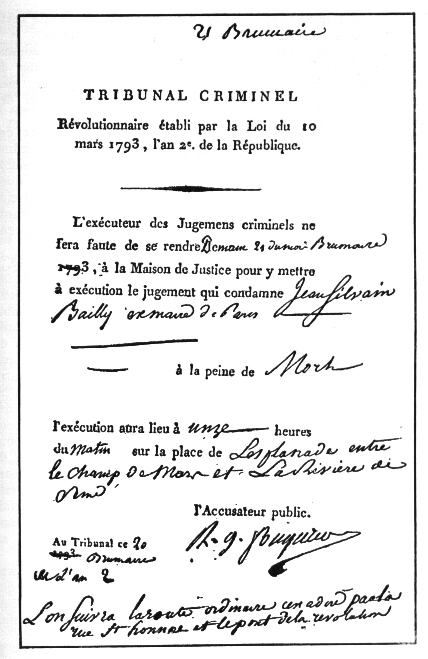 21 Brumaire
TRIBUNAL CRIMINEL
Révolutionnaire établi par la Loi du 10
mars 1793, l'an 2e. de la République.
L'exécuteur des Jugemens criminels ne
fera faute de se rendre Demain 21 du mois Brumaire
1793, à la Maison de Justice pour y mettre
à exécution le jugement qui condamne Jean Silvain
Bailly exmaire de Paris
à la peine de Mort
l'exécution aura lieu à unze heures
du Matin sur la place de L'esplanade entre
le champ de Mars et La Riviere de
l'Accusateur public.
Au Tribunal ce 20
1793 Brumaire
L'an 2
L'on suivra la route ordinaire par la
rue St honoré et le pont de la revolution